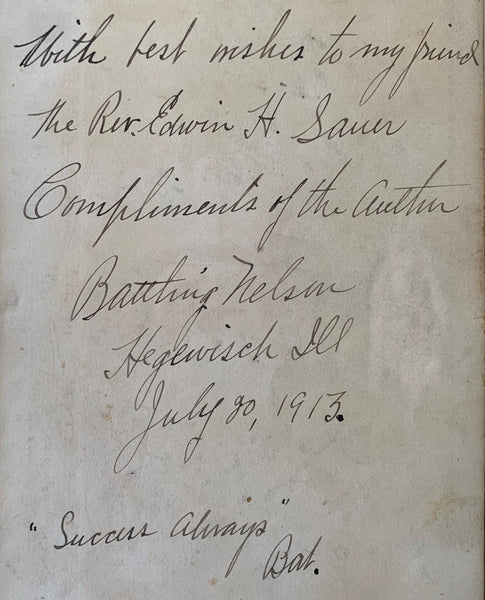 With best wishes to my friend
the Rev. Edwin H. Sauer
Compliments of the Author
Battling Nelson
Hegewisch Ill
July 20, 1913.
"Success Always"
Bat.